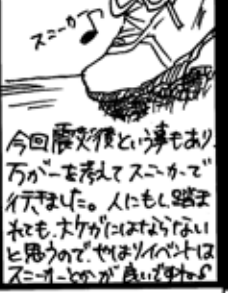 スニーカー
今回震災後という事もあり、
万が一を考えてスニーカーで
行きました。人にもし踏ま
れても、大ケガにはならない
と思うので、やはりイベントは
スニーカーとかが良いですね